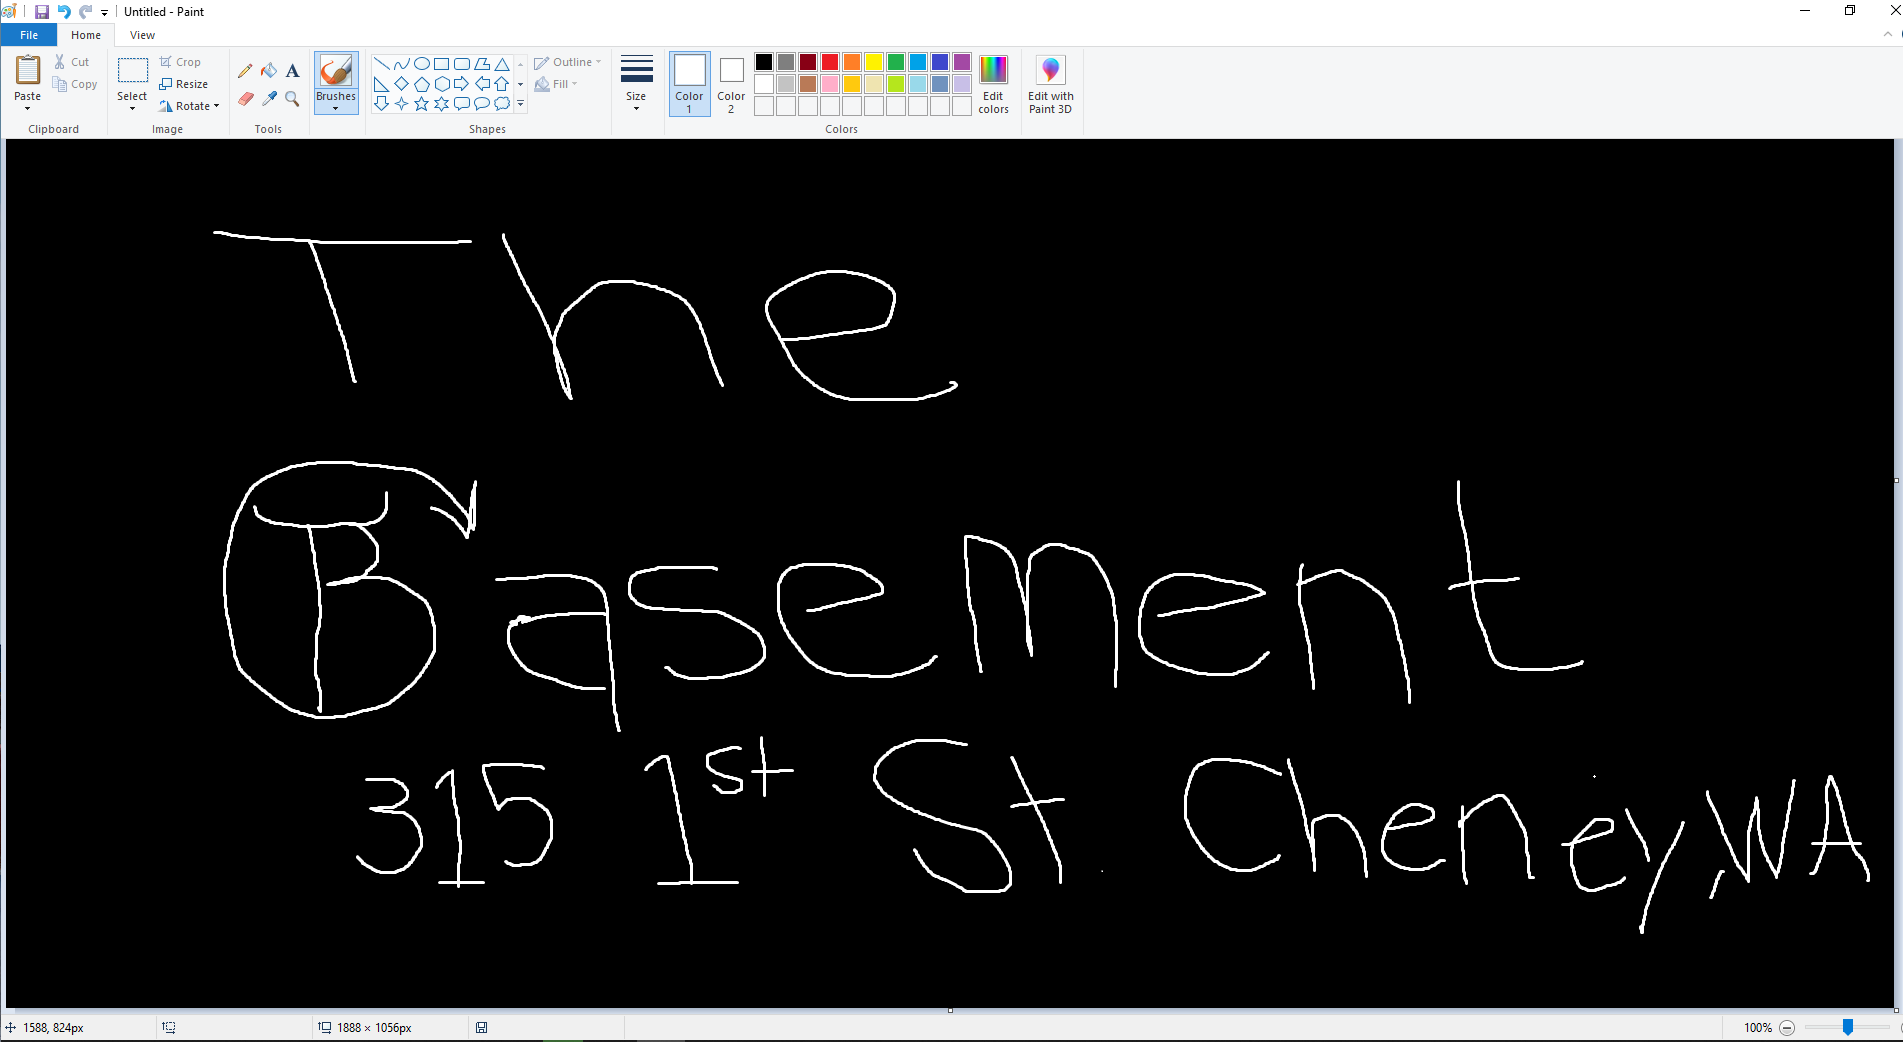 Untitled - Paint
File Home View
Paste Cut Copy Clipboard
Select Crop Resize Rotate Image
Tools
Brushes
Shapes Outline Fill
Size
Color 1 Color 2 Edit colors Colors
Edit with Paint 3D
The
Basement
315 1st St. Cheney, WA
1588, 824px 1888 × 1056px 100%